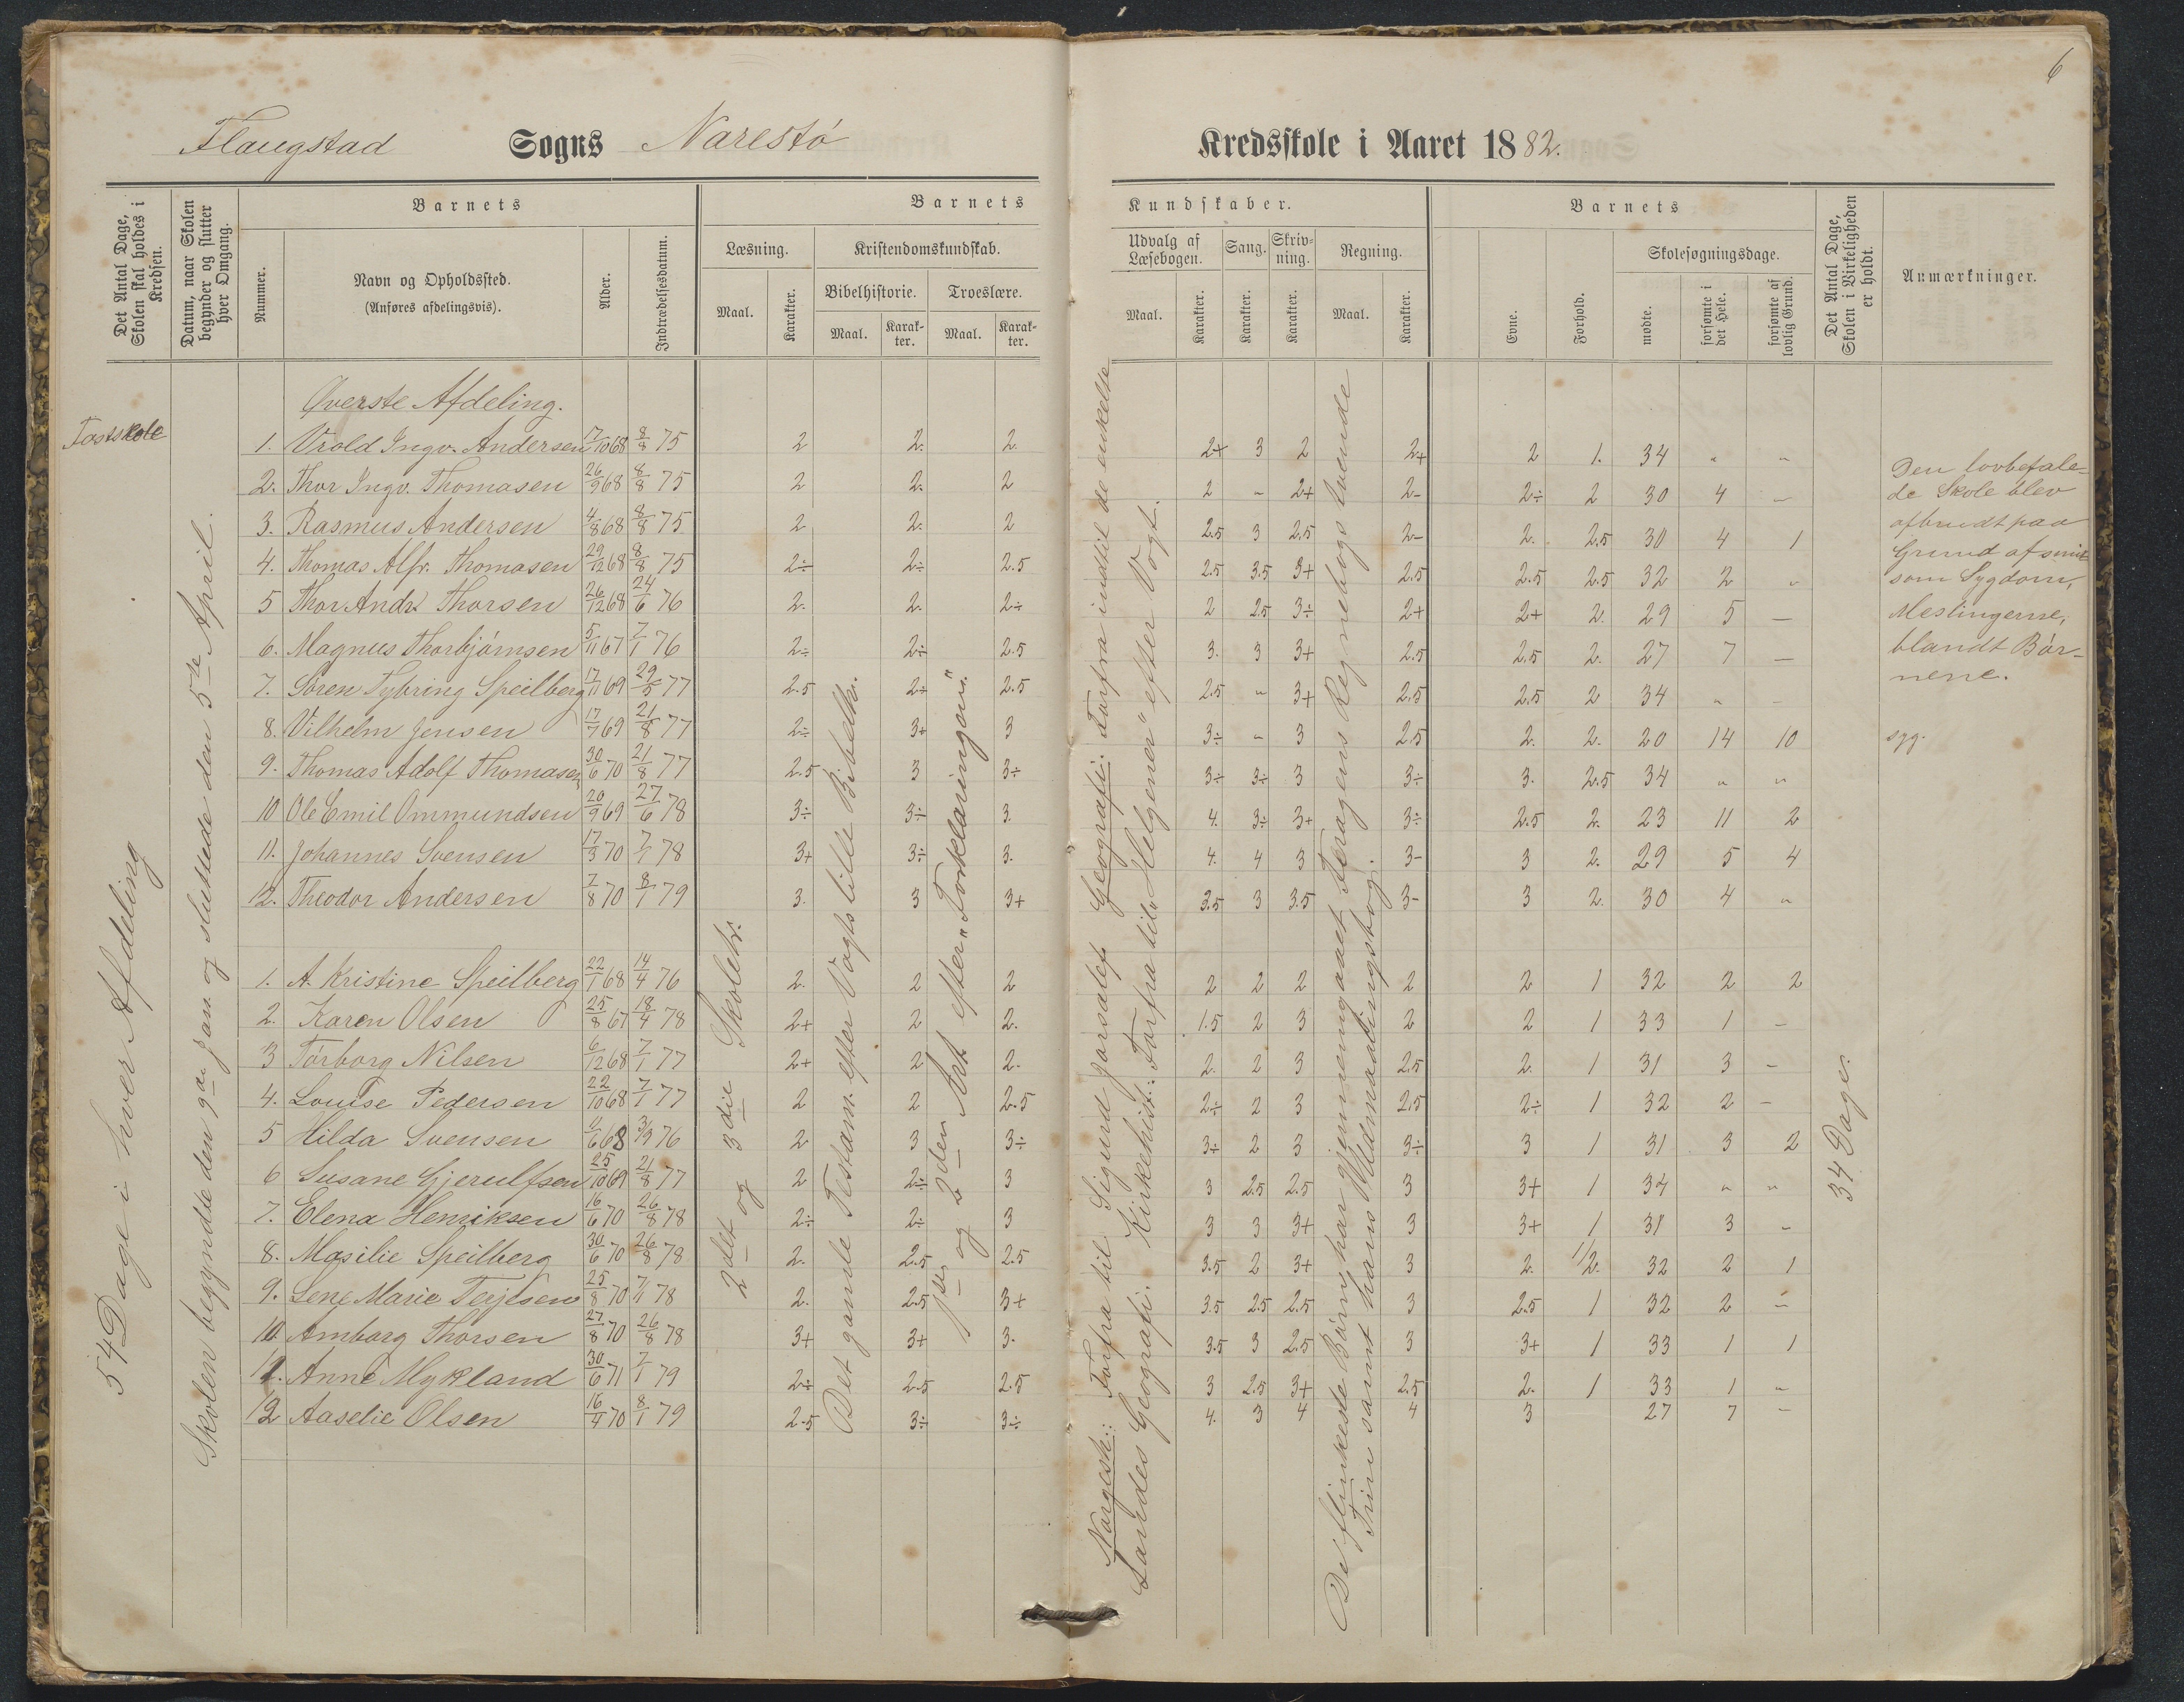 6
Flaugstad Sogns Narestø Kredsskole i Aaret 1882.
Det Antal Dage, Skolen skal holdes i Kredsen.
Datum, naar Skolen begynder og slutter hver Omgang.
Barnets
Nummer.
Navn og Opholdssted.
(Anføres afdelingsvis).
Alder.
Indtrædelsesdatum.
Barnets Kundskaber.
Læsning.
Maal. Karakter.
Kristendomskundskab.
Bibelhistorie. Troeslære.
Maal. Karakter. Maal. Karakter.
Udvalg af Læsebogen.
Maal. Karakter.
Sang.
Karakter.
Skrivning.
Karakter.
Regning.
Maal. Karakter.
Barnets
Evne.
Forhold.
Skolesøgningsdage.
mødte.
forsømte i det Hele.
forsømte af lovlig Grund.
Det Antal Dage, Skolen i Virkeligheden er holdt.
Anmærkninger.
Fastskole
54 Dage i hver Afdeling
Skolen begyndte den 9de Jan. og sluttede den 5te April.
Øverste Afdeling.
1. Vrold Ingv. Andersen 17/10 68 8/8 75 2 2. 2. 2+ 3 2 2+ 2 1. 34 " "
2. Thor Ingv. Thomasen 26/9 68 8/8 75 2 2. 2 2 " 2+ 2- 2÷ 2 30 4 -
3. Rasmus Andersen 4/8 68 8/8 75 2 2. 2 2.5 3 2.5 2- 2. 2.5 30 4 1
4. Thomas Alfr. Thomasen 29/12 68 8/8 75 2÷ 2÷ 2.5 2.5 3.5 3+ 2.5 2.5 2.5 32 2 "
5 Thor Andr. Thorsen 26/12 68 24/6 76 2. 2. 2÷ 2 2.5 3÷ 2+ 2+ 2. 29 5 -
6. Magnus Thorbjørnsen 5/11 67 7/1 76 2÷ 2÷ 2.5 3. 3 3+ 2.5 2.5 2. 27 7 -
7. Søren Tybring Speilberg 17/11 69 29/5 77 2.5 2÷ 2.5 2.5 " 3+ 2.5 2.5 2 34 " -
8. Vilhelm Jensen 17/7 69 21/8 77 2÷ 3+ 3 3÷ " 3 2.5 2. 2. 20 14 10 syg.
9. Thomas Adolf Thomasen 30/6 70 21/8 77 2.5 3 3÷ 3÷ 3÷ 3 3÷ 3. 2.5 34 " "
10 Ole Emil Ommundsen 20/9 69 27/6 78 3÷ 3÷ 3. 4. 3÷ 3+ 3÷ 2.5 2. 23 11 2
11. Johannes Svensen 17/3 70 7/1 78 3+ 3÷ 3. 4. 4 3 3- 3 2. 29 5 4
12. Theodor Andersen 7/8 70 8/1 79 3. 3 3+ 3.5 3 3.5 3- 3 2. 30 4 "
1. A. Kristine Speilberg 22/1 68 14/4 76 2. 2 2 2 2 2 2 2 1 32 2 2
2. Karen Olsen 25/8 67 18/4 78 2+ 2 2. 1.5 2 3 2 2 1 33 1 -
3 Tørborg Nilsen 6/12 68 7/1 77 2+ 2 2. 2. 2 3 2.5 2. 1 31 3 -
4. Louise Pedersen 22/10 68 7/1 77 2 2 2.5 2÷ 2 3 2.5 2÷ 1 32 2 -
5 Hilda Svensen 2/6 68 3/3 76 2 3 3÷ 3÷ 2 3 3÷ 3 1 31 3 2
6 Susane Gjerulfsen 25/10 69 21/8 77 2 2÷ 3 3 2.5 2.5 3 3+ 1 34 " "
7. Elena Henriksen 16/6 70 26/8 78 2÷ 2÷ 3 3 3 3+ 3 3+ 1 31 3 -
8. Masilie Speilberg 30/6 70 26/8 78 2. 2.5 2.5 3.5 2 3+ 3 2. 1/2. 32 2 1
9. Lene Marie Terjesen 25/8 70 7/1 78 2. 2.5 3+ 3.5 2.5 2.5 3 2.5 1 32 2 -
10. Amborg Thorsen 27/8 70 26/8 78 3+ 3+ 3. 3.5 3 2.5 3 3+ 1 33 1 1
11. Anne Mykland 30/6 71 7/1 79 2÷ 2.5 2.5 3 2.5 3+ 2.5 2. 1 33 1 -
12 Aaselie Olsen 16/4 70 8/1 79 2.5 3÷ 3÷ 4. 3 4 4 3 27 7 -
2det og 3die Skoletr.
Det gamle Testam. efter Vogts lille Bibelh.
1ste og 2den Art. efter "Forklaringen".
Norgesh.: Forfra til Sigurd Jorsalef. Geografi: Forfra indtil de enkelte
Landes Geografi. Kirkehist.: Forfra til "Helgener" efter Vogt.
De flinkeste Børn har gjennemgaaet Foragens Regnebogs tvende
Trin samt hans Udenaadsingsbog.
34 Dage.
Den lovbefale-
de Skole blev
afbrudt paa
Grund af smit-
som Sygdom,
Meslingerne,
blandt Bør-
nene.